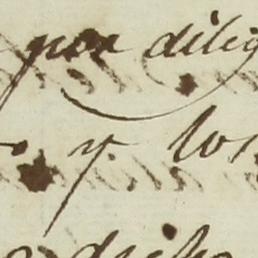 por dilig
o y los
dicho